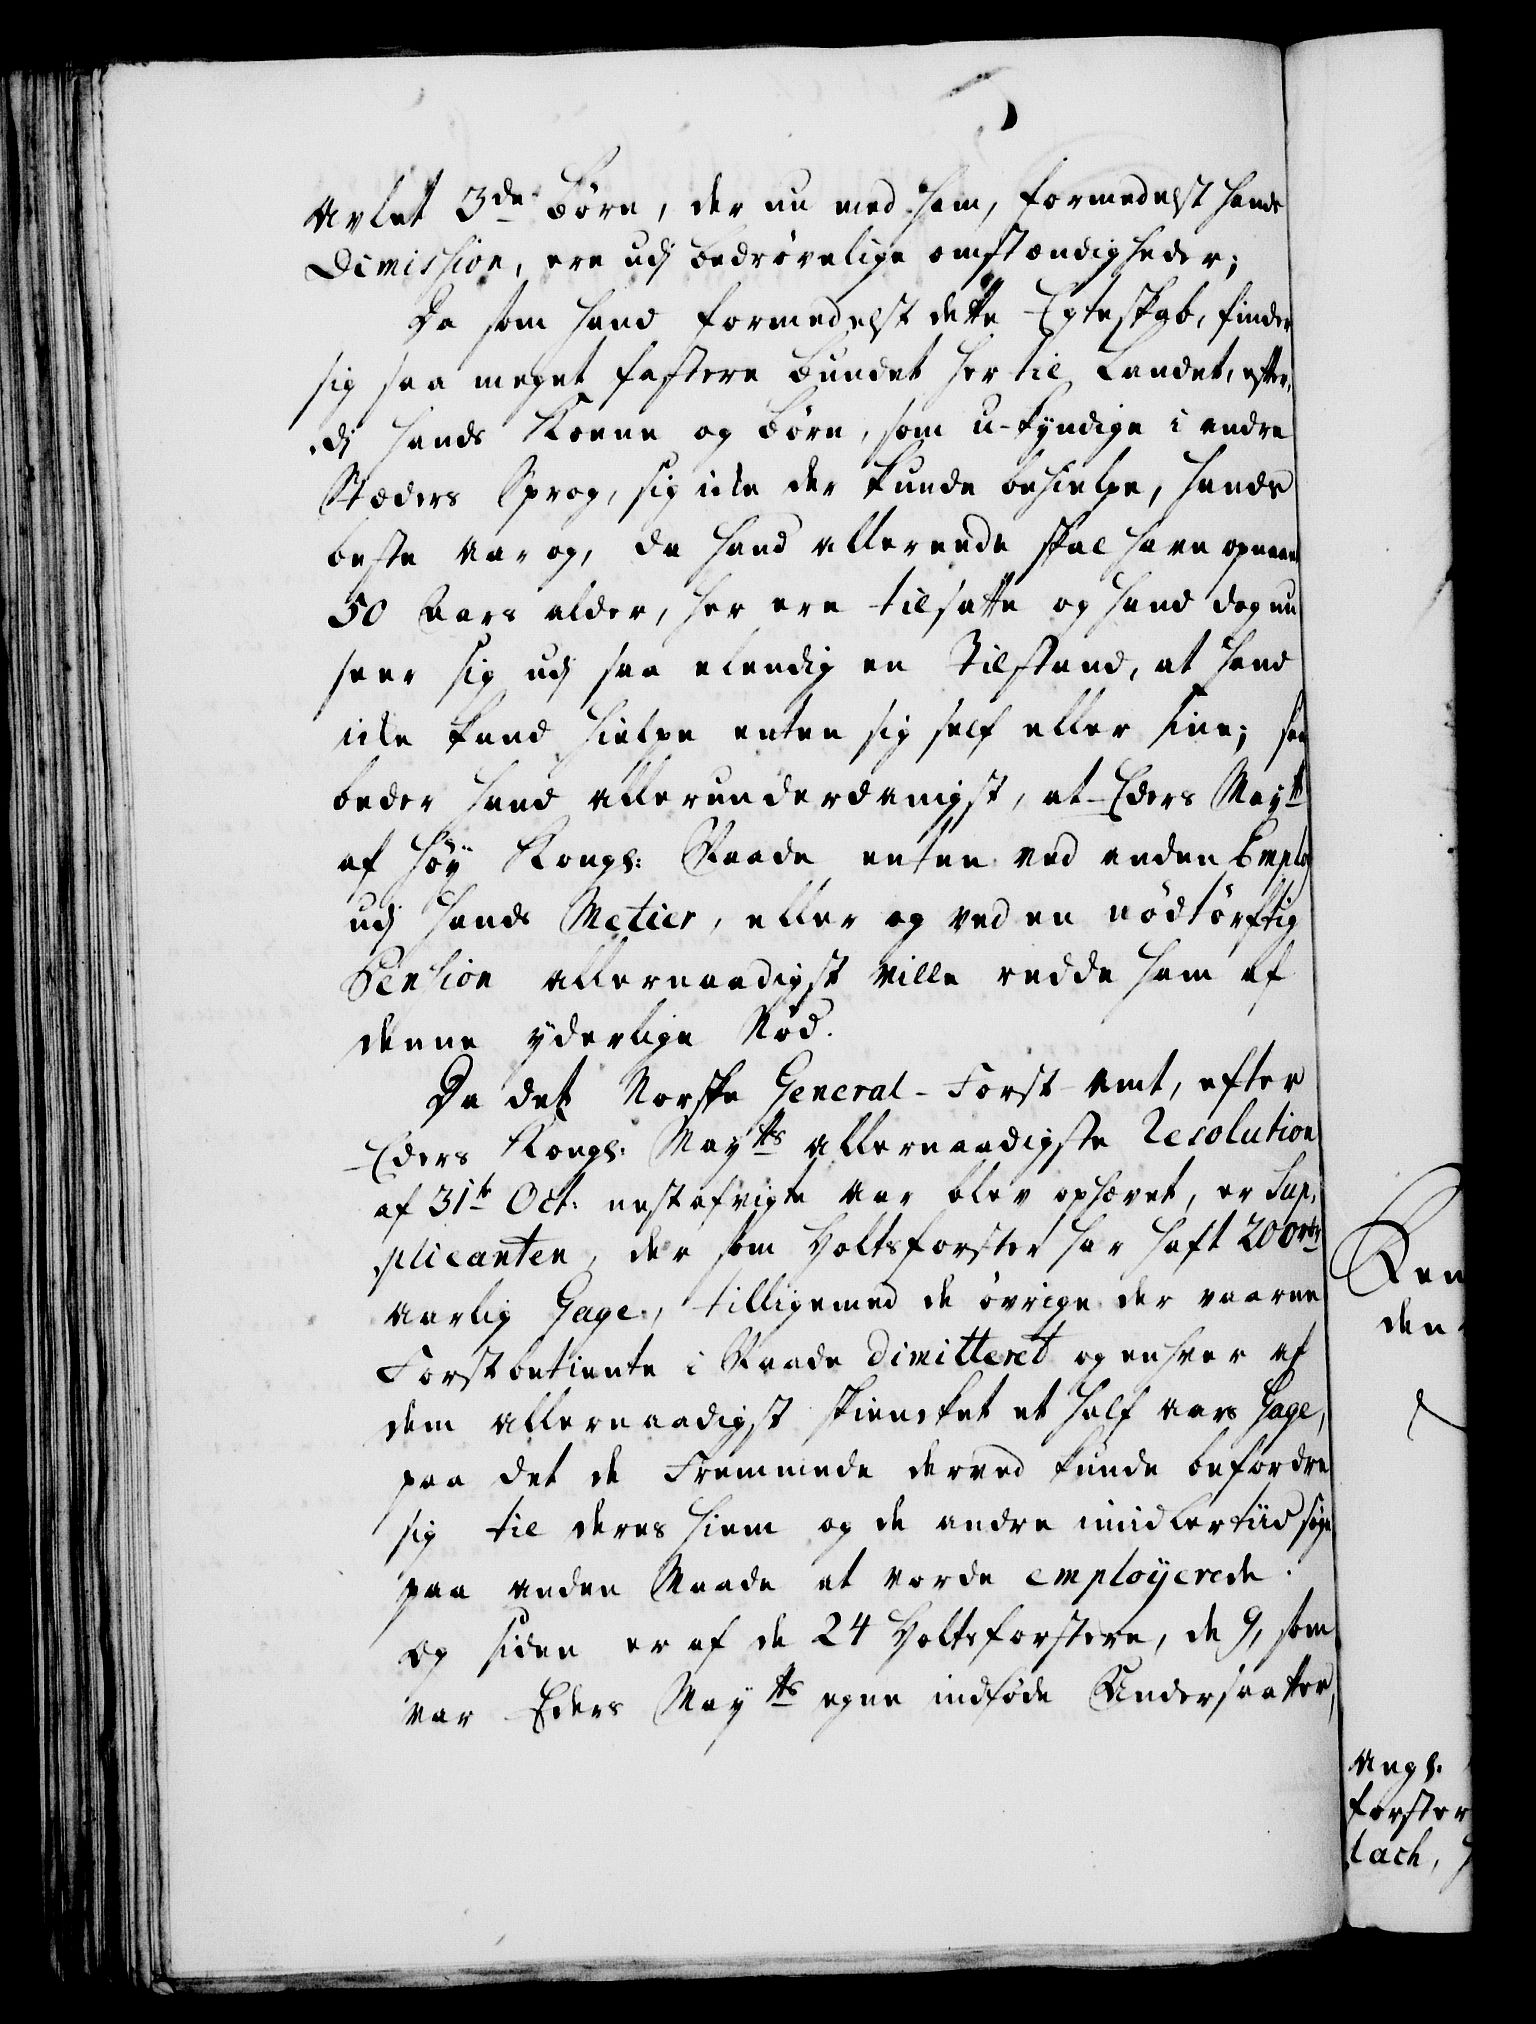 avlet 3de Børn, der nu med ham, formedelst hands
Dimission, ere udj bedrøvelige omstændigheder;
Da som hand formedelst dette Egteskab, finder
sig saa meget fastere bundet her til Landet, efter,
,dj hands Kone og Børn, som u-kyndige i andre
Stæders Sprog, sig icke der kunde behielpe, hands
beste Aar og, da hand allereede skal have opnaaet
50 Aars alder, her ere tilsatte og hand dog nu
seer sig udj saa elendig en Tilstand, at hand
icke kand hielpe enten sig self eller sine; saa
beder hand allerunderdanigst, at Eders Maytt
af høy Kongl: Naade enten ved anden Emploj
udj hands Metier, eller og ved en nødtørftig
Pension allernaadigst ville redde ham af
denne yderlige Nød.
Da det Norske General-Forst-Amt, efter
Eders Kongl: Maytts allernaadigste Resolution
af 31te Oct: nestafvigte Aar blev ophævet, er Sup,
,plicanten, der som Holtzforster har haft 200 rdr
aarlig Gage, tilligemed de øvrige der vaarne
Forstbetiente i Naade dimitteret og enhver af
dem allernaadigst skiencket et half aars Gage,
paa det de Fremmede derved kunde befordre
sig til deres hiem og de andre imidlertiid søge
paa anden Maade at vorde employerede.
Og siden er af de 24 Holtsforstere, de 9, som
var Eders Maytts egne indføde Undersaatter,
den
Angl:
forster
lach,